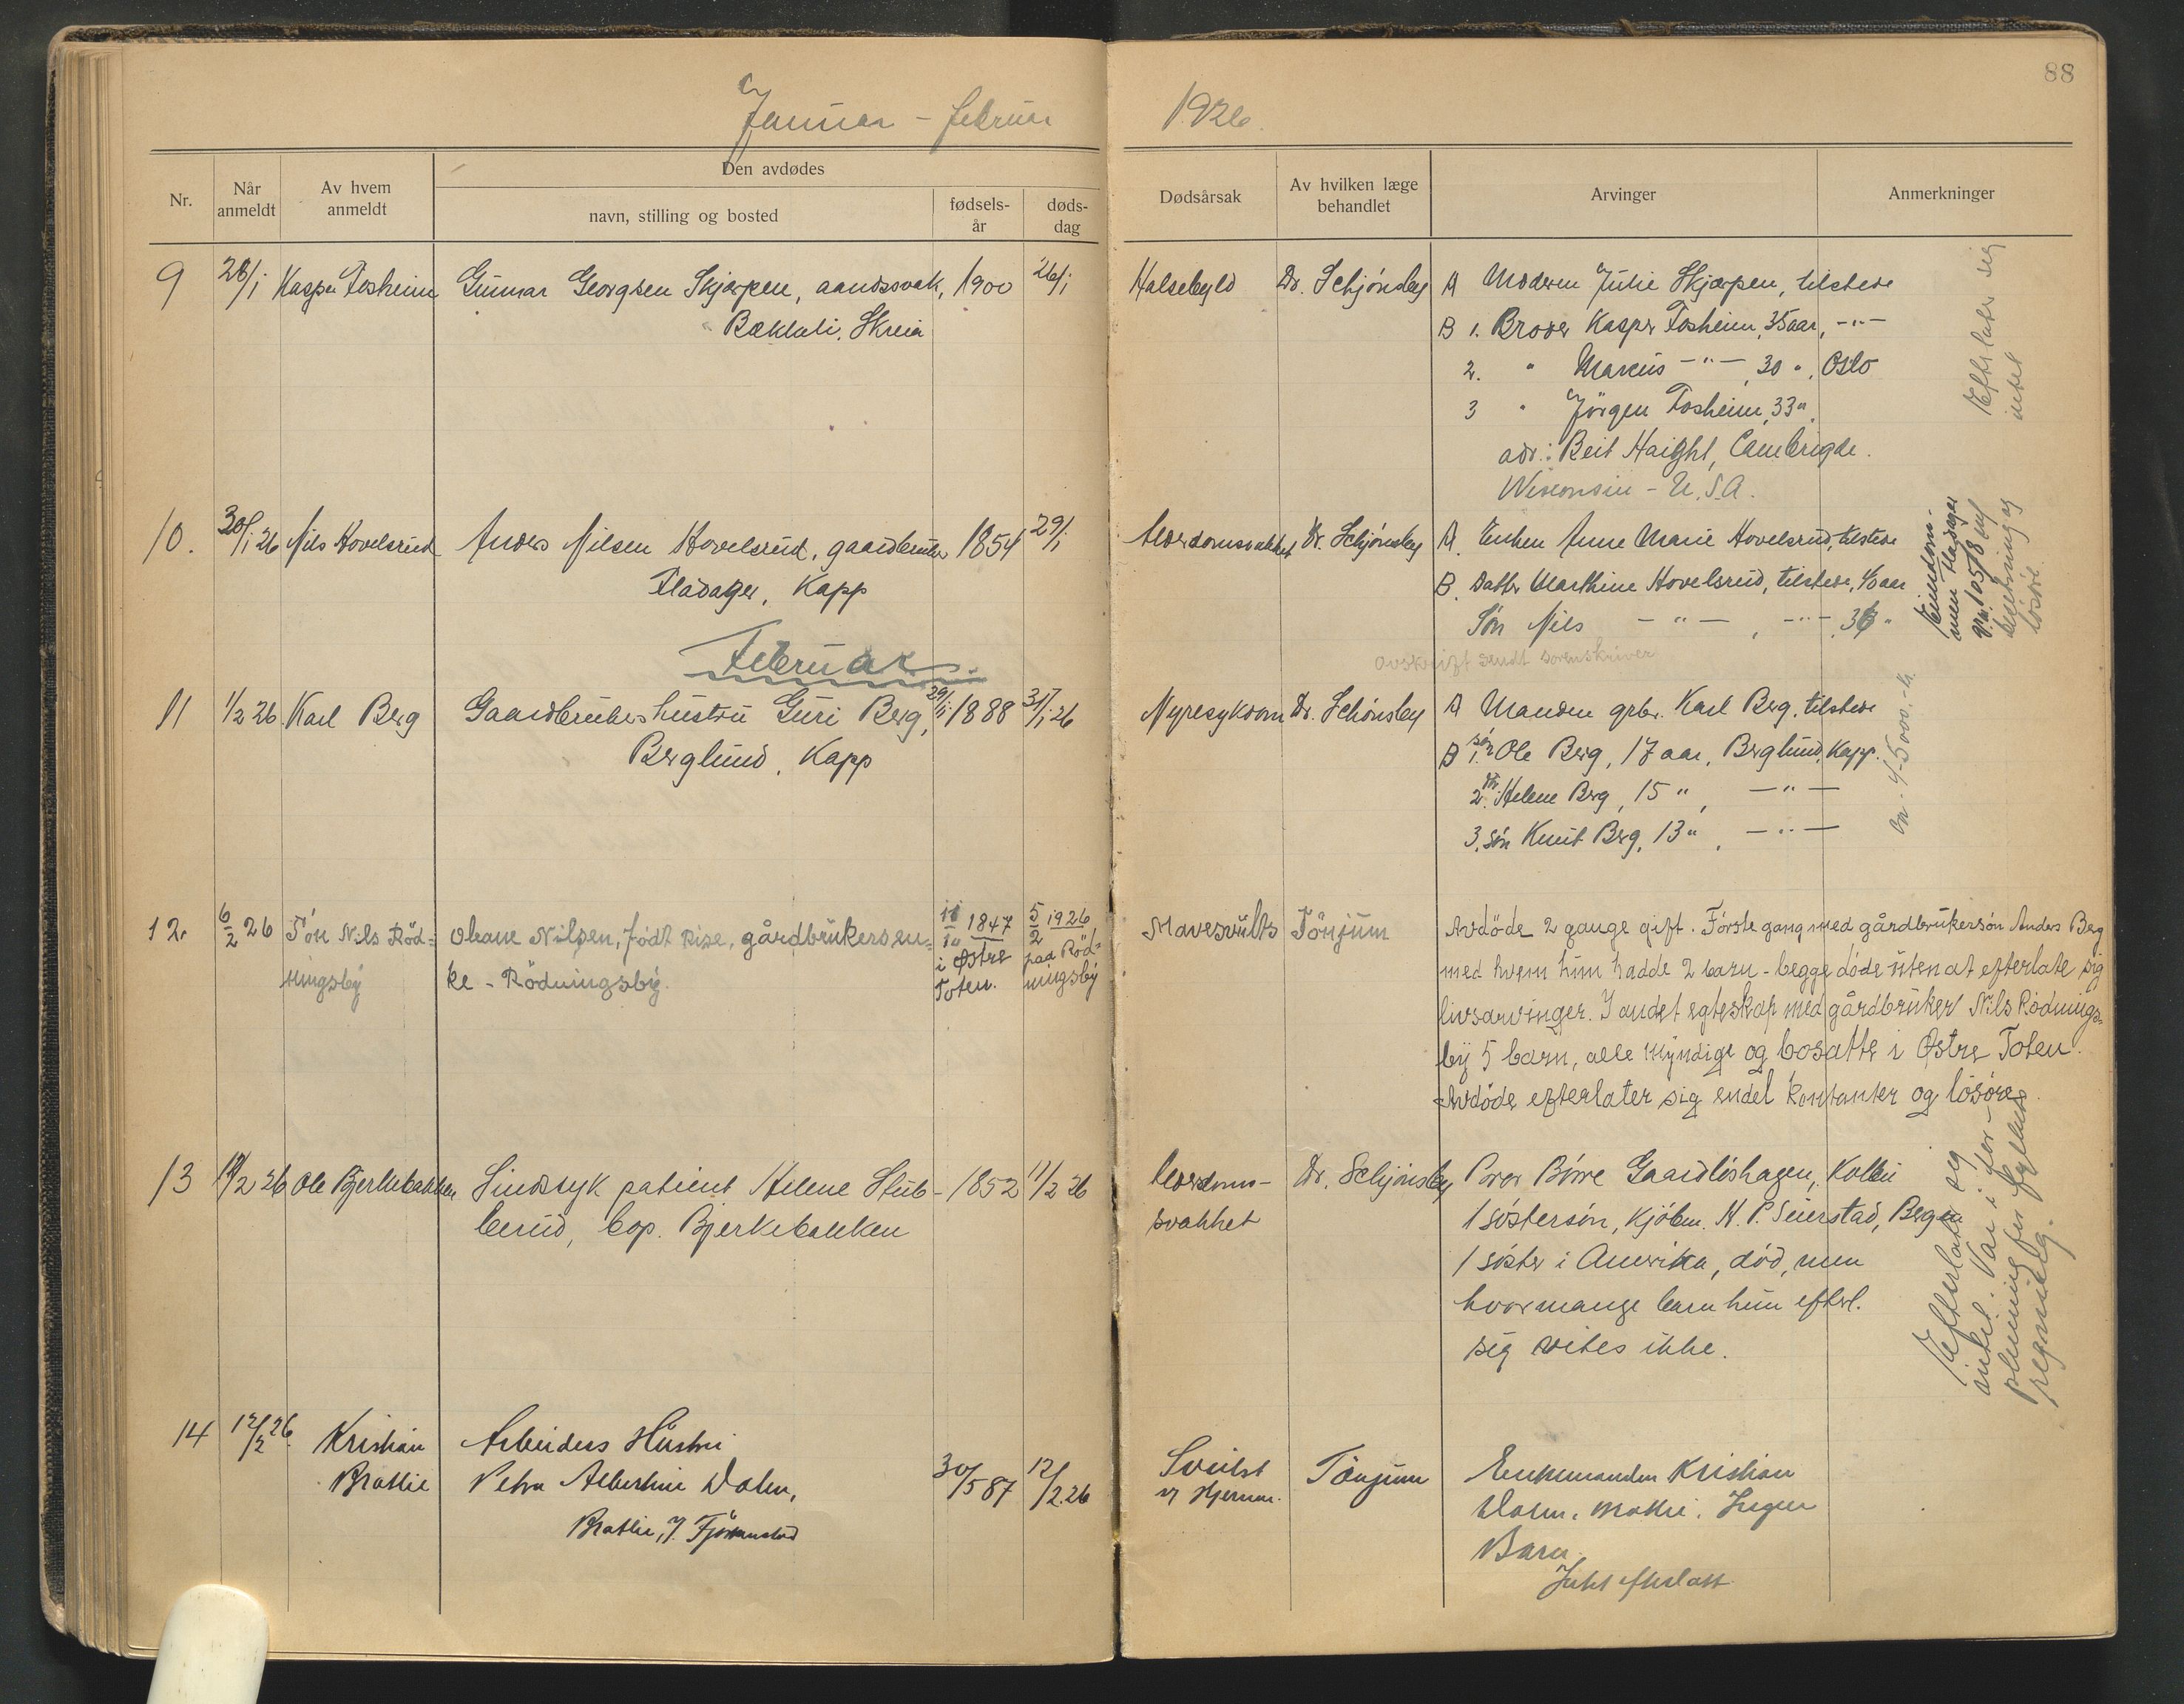 88
Januar - februar 1926.
Nr.
Når anmeldt
Av hvem anmeldt
Den avdødes
navn, stilling og bosted
fødsels-år
døds-dag
Dødsårsak
Av hvilken læge behandlet
Arvinger
Anmerkninger
9 28/1 Kasper Fosheim Gunnar Georgsen Skjærpen, aandssvak, 1900 26/1
Bakkeli, Skreia
Halsebyld Dr. Schjønsby A Moderen Julie Skjærpen, tilstede
B 1. Broder Kasper Fosheim, 35 aar, -"-
2. " Marcus -"-, 30 ", Oslo
3 " Jörgen Fosheim, 33 "
adr.: Beit Haight, Cambrigde.
Wisconsin - U.S.A.
Efterlater sig
intet
10. 30/1 26 Nils Hovelsrud Anders Nilsen Hovelsrud, gaardbruker 1854 29/1
Fladager, Kapp
Alderdomssvakhet Dr. Schjønsby A. Enken Anne Marie Hovelsrud, tilstede
B. Datter Marthine Hovelsrud, tilstede, 40 aar
Sön Nils -"-, -"-, 36 "
avskrift sendt sorenskriver
Eiendom-
men Fladager
løsöre.
Februar.
11 1/2 26 Karl Berg Gaardbrukershustru Guri Berg, 29/1 1888 31/1 26
Berglund, Kapp
Nyresykdom Dr. Schönsby A Manden grbr. Karl Berg, tilstede
B 1. sön Ole Berg, 17 aar, Berglund, Kapp.
2. dtr. Helene Berg, 15 ", -"-
3. sön Knut Berg, 13 ", -"-
ca. 4-5000,- kr.
12. 6/2 26 Sön Nils Röd= Oleane Nilsen, födt Rise, gårdbrukersen= 11/10 1847 5/2 1926
ningsby ke - Rödningsby. i Østre Toten. paa Röd=ningsby
Mavesvulst Tönjum Avdöde 2 gange gift. Förste gang med gårdbrukersön Anders Berg
med hvem hun hadde 2 barn - begge döde uten at efterlate sig
livsarvinger. I andet egteskap med gårdbruker Nils Rödnings-
by 5 barn, alle myndige og bosatte i Østre Toten.
Avdöde efterlater sig endel kontanter og lösöre.
13 12/2 26 Ole Bjerkebakken Sindssyk patient Helene Stub- 1852 11/2 26
berud, bop. Bjerkebakken
Alderdoms-
svakhet
Dr. Schjønsby Bror Börre Gaardlöshagen, Kolbu
1 söstersön, Kjöbm. H. P. Seierstad, Bergen
1 söster i Amerika, död, men
hvormange barn hun efterl.
sig vites ikke.
Efterlater sig
intet. Var i for-
pleining for fylkets
regning.
14 12/2 26. Kristian Arbeiders Hustru
Bratlie Petra Albertine Dalen, 30/5 87 12/2.26
Bratlie,
Svulst
i Hjernen.
Tönjum Enkemanden Kristian
Dalen, Ingen
Barn.
Intet efterlatt